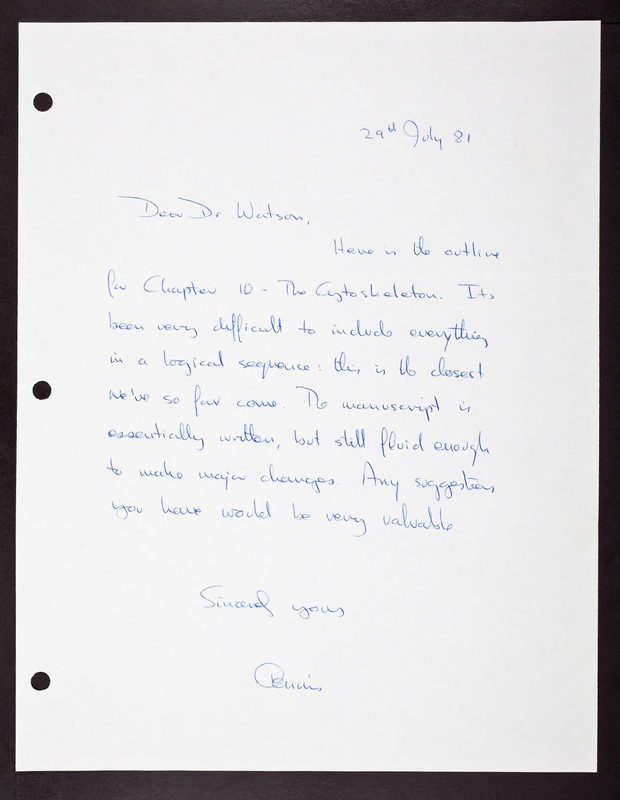 29th July 81
Dear Dr Watson,
Here is the outline
for Chapter 10 - The Cytoskeleton. Its
been very difficult to include everything
in a logical sequence: this is the closest
we've so far come. The manuscript is
essentially written, but still fluid enough
to make major changes. Any suggestions
you have would be very valuable
Sincerely yours
Dennis